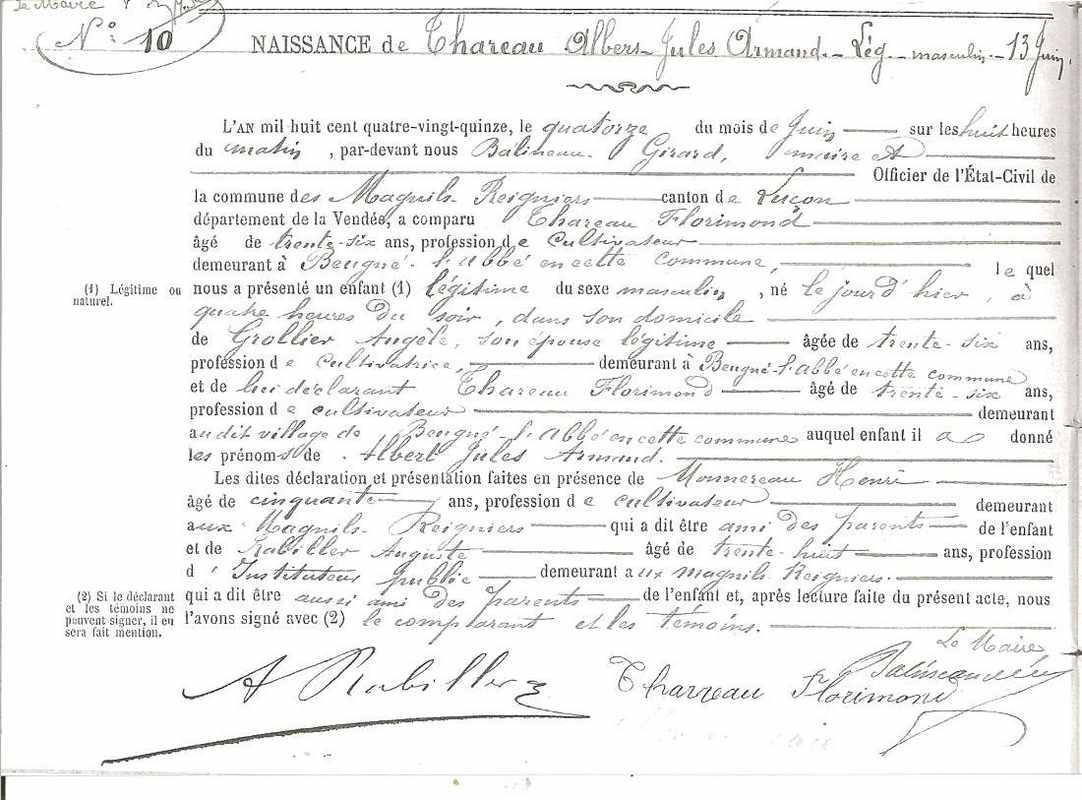 Le Maire
N° 10 NAISSANCE de Thareau Albert Jules Armand. Lég. masculin. 13 Juin.
L'AN mil huit cent quatre-vingt-quinze, le quatorze du mois de Juin sur les huit heures
du matin, par-devant nous Balineau Girard, maire et
Officier de l'État-Civil de
la commune des Magnils Reigniers canton de Luçon
département de la Vendée, a comparu Thareau Florimond
âgé de trente-six ans, profession de cultivateur
demeurant à Beugné-l'Abbé en cette commune, lequel
(1) Légitime ou
naturel.
nous a présenté un enfant (1) légitime du sexe masculin, né le jour d'hier, à
quatre heures du soir, dans son domicile
de Grollier Angèle, son épouse légitime âgée de trente-six ans,
profession de cultivatrice, demeurant à Beugné-l'Abbé en cette commune
et de lui déclarant Thareau Florimond âgé de trente-six ans,
profession de cultivateur demeurant
audit village de Beugné-l'Abbé en cette commune auquel enfant il a donné
les prénoms de Albert Jules Armand.
Les dites déclaration et présentation faites en présence de Monnereau Henri
âgé de cinquante ans, profession de cultivateur demeurant
aux Magnils Reigniers qui a dit être ami des parents de l'enfant
et de Rabiller Auguste âgé de trente-huit ans, profession
d'Instituteur public demeurant aux Magnils Reigniers.
(2) Si le déclarant
et les témoins ne
peuvent signer, il en
sera fait mention.
qui a dit être aussi ami des parents de l'enfant et, après lecture faite du présent acte, nous
l'avons signé avec (2) le comparant et les témoins.
Le Maire
A Rabiller Tharreau Florimond